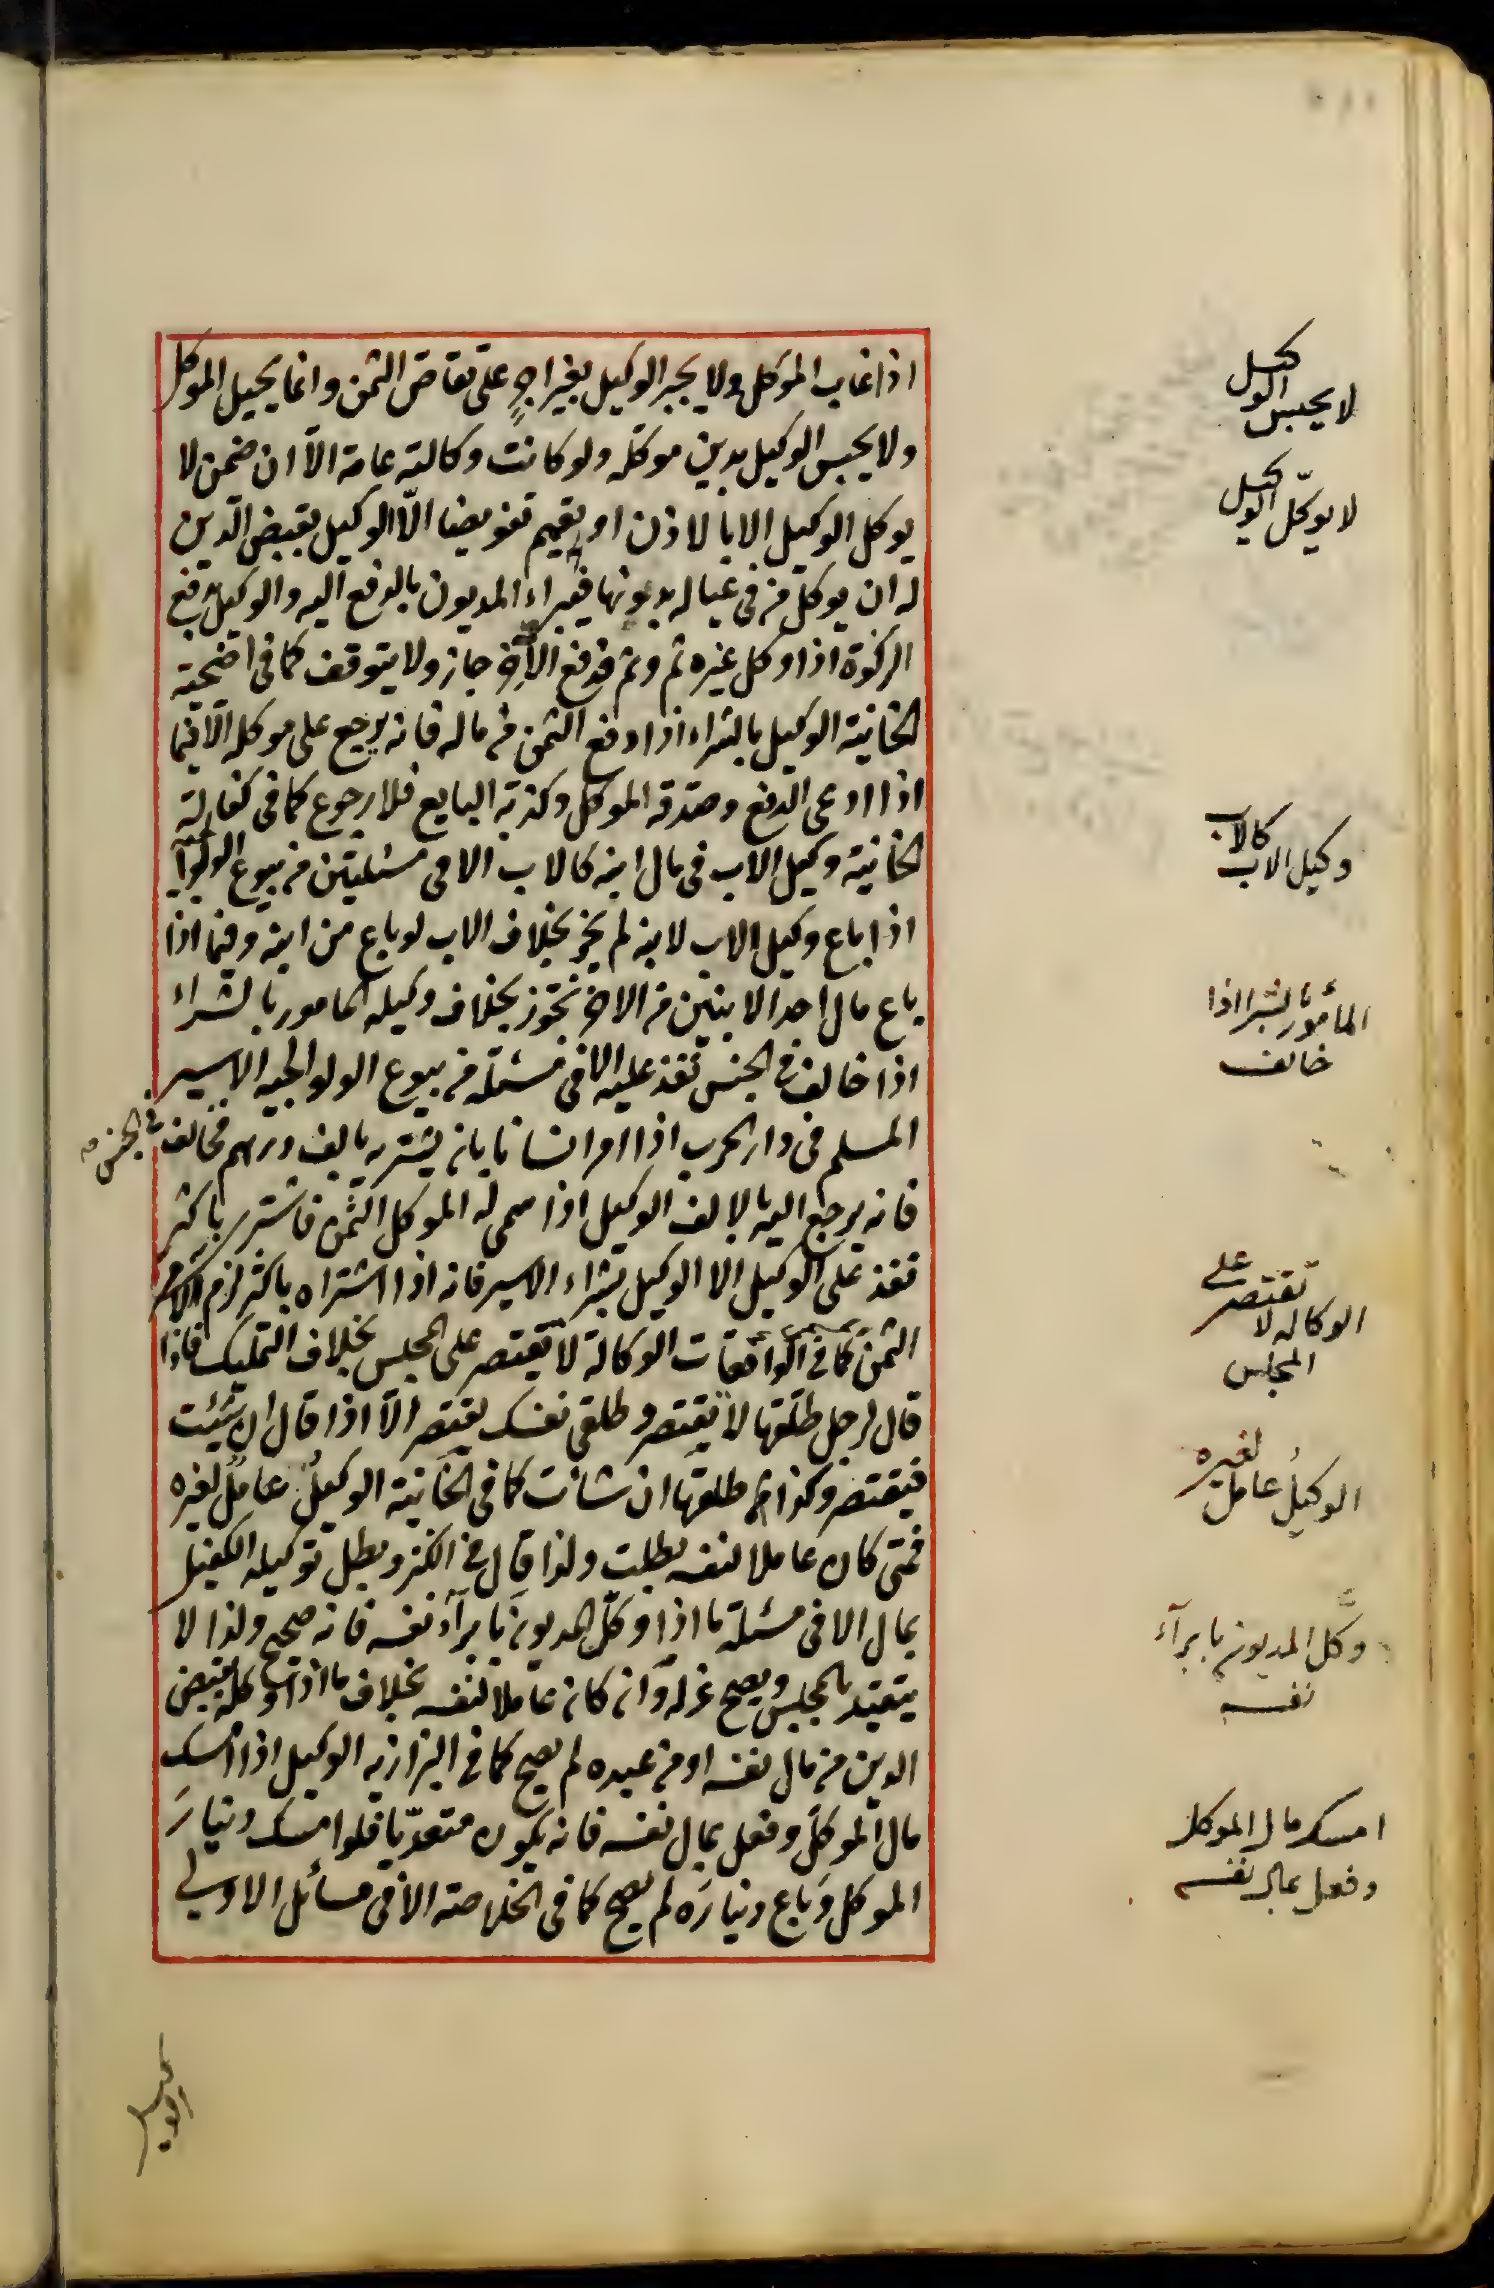 اذا غاب الموكل ولا يجبر الوكيل بغير اجرٍ على تقاضى الثمن وانما يحيل الموكل
ولا يحبس الوكيل بدين موكله ولو كانت وكالته عامة الّا ان ضمن لا
يوكل الوكيل الا بالاذن او تعميم تفويضا الّا الوكيل بقبض الدين
له ان يوكل من فى عياله بدونها فيبراء المديون بالدفع اليه والوكيل بدفع
الزكوة اذا وكل غيره ثم وثم فدفع الآخر جاز ولا يتوقف كما فى اضحية
الخانية الوكيل بالشراء اذا دفع الثمن من ماله فانه يرجع على موكله الّا فيما
اذا ادعى الدفع وصدقه الموكل وكذبه البايع فلا رجوع كما فى كفالة
الخانية وكيل الاب فى مال ابنه كالاب الا فى مسئلتين من بيوع الولوالجية
اذا باع وكيل الاب لابنه لم يجز بخلاف الاب لو باع من ابنه وفيما اذا
باع مال احد الابنين من الاخر تجوز بخلاف وكيله المامور بالشراء
اذا خالف فى الجنس نفذ عليه الا فى مسئلة من بيوع الولوالجيه الاسير
المسلم فى دار الحرب اذا امر انسانا بان يشتريه بالف درهم فخالف فى الجنس صه
فانه يرجع اليه بالالف الوكيل اذا سمى له الموكل الثمن فاشترى باكثر
نفذ على الوكيل الا الوكيل بشراء الاسير فانه اذا اشتراه باكثر لزم الامر
الثمن كما فى الواقعات الوكالة لا تقتصر على المجلس بخلاف التمليك فاذا
قال لرجل طلّقها لا يقتصر وطلقى نفسك يقتصر الّا اذا قال ان شئت
فيقتصر وكذا طلقها ان شاءت كما فى الخانية الوكيلُ عاملٌ لغيره
فمتى كان عاملا لنفسه بطلت ولذا قال فى الكنز وبطل توكيله الكفيل
بمال الا فى مسئلة ما اذا وكّل المديون بابرآء نفسه فانه صحيح ولذا لا
يتقيد بالمجلس ويصح عزله وان كان عاملا لنفسه بخلاف ما اذا وكله بقبض
الدين من مال نفسه او من عبده لم يصح كما فى البزازيه الوكيل اذا امسك
مال الموكل وفعل بمال نفسه فانه يكون متعدّيا فلو امسك دينارَ
الموكل وَباع دينارَه لم يصح كما فى الخلاصة الا فى مسائل الاولى
لا يحبس الوكيل
لا يوكّل الوكيل
وكيل الاب كالاب
المأمور بالشرا اذا
خالف
الوكاله لا تقتصر على
المجلس
الوكيلُ عامل لغيره
وكّل المديون بابرآء
نفسه
امسك مال الموكل
وفعل بمال نفسه
الوكيل